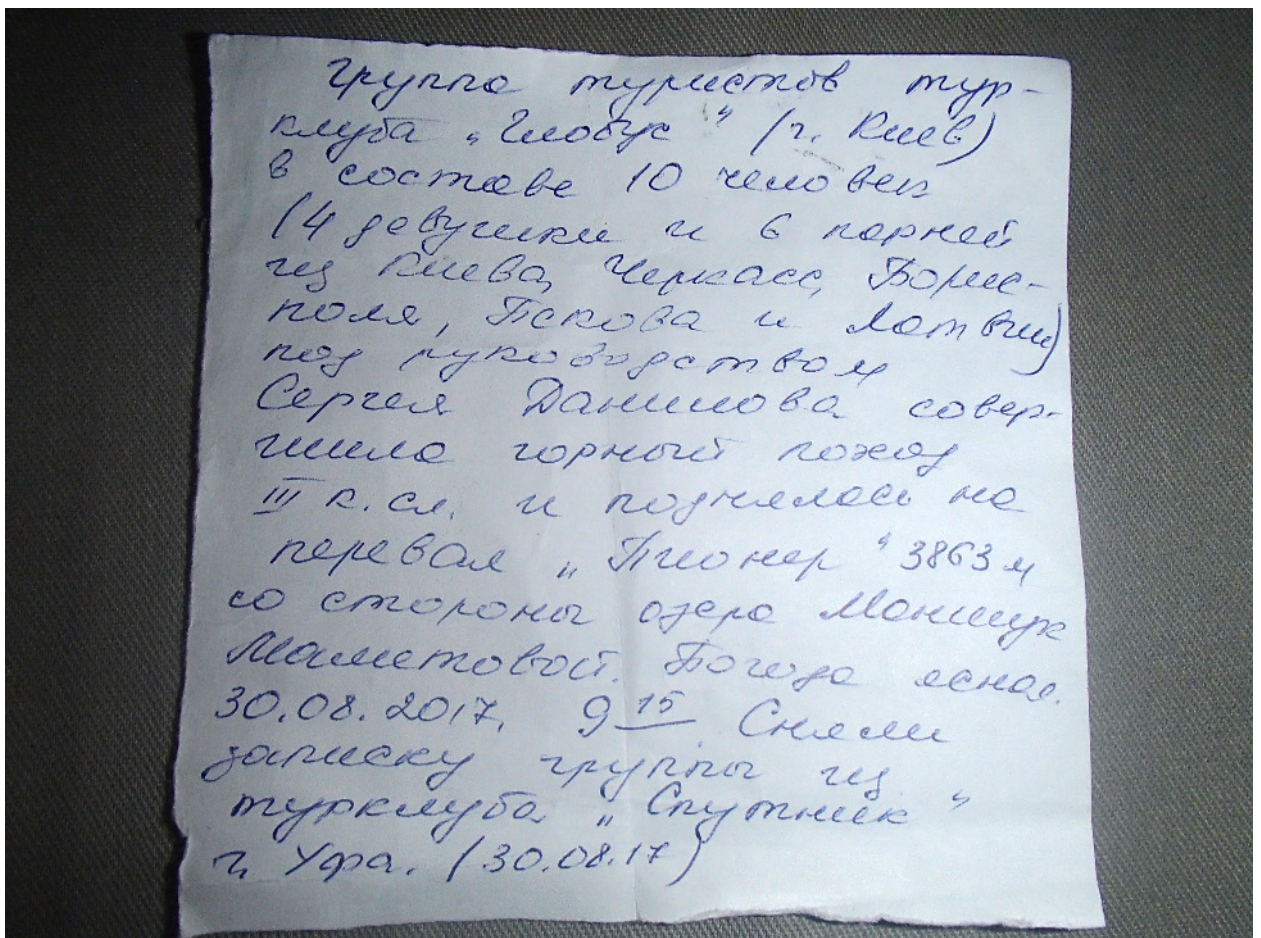 Группа туристов тур-
клуба „Глобус" (г. Киев)
в составе 10 человек
(4 девушки и 6 парней
из Киева, Черкасс, Борис-
поля, Пскова и Латвии)
под руководством
Сергея Данилова совер-
шила горный поход
III к.сл. и поднялась на
перевал „Пионер" 3863 м
со стороны озера Маншук
Маметовой. Погода ясная.
30.08.2017, 9 15 Сняли
записку группы из
турклуба „Спутник"
г. Уфа. (30.08.17)